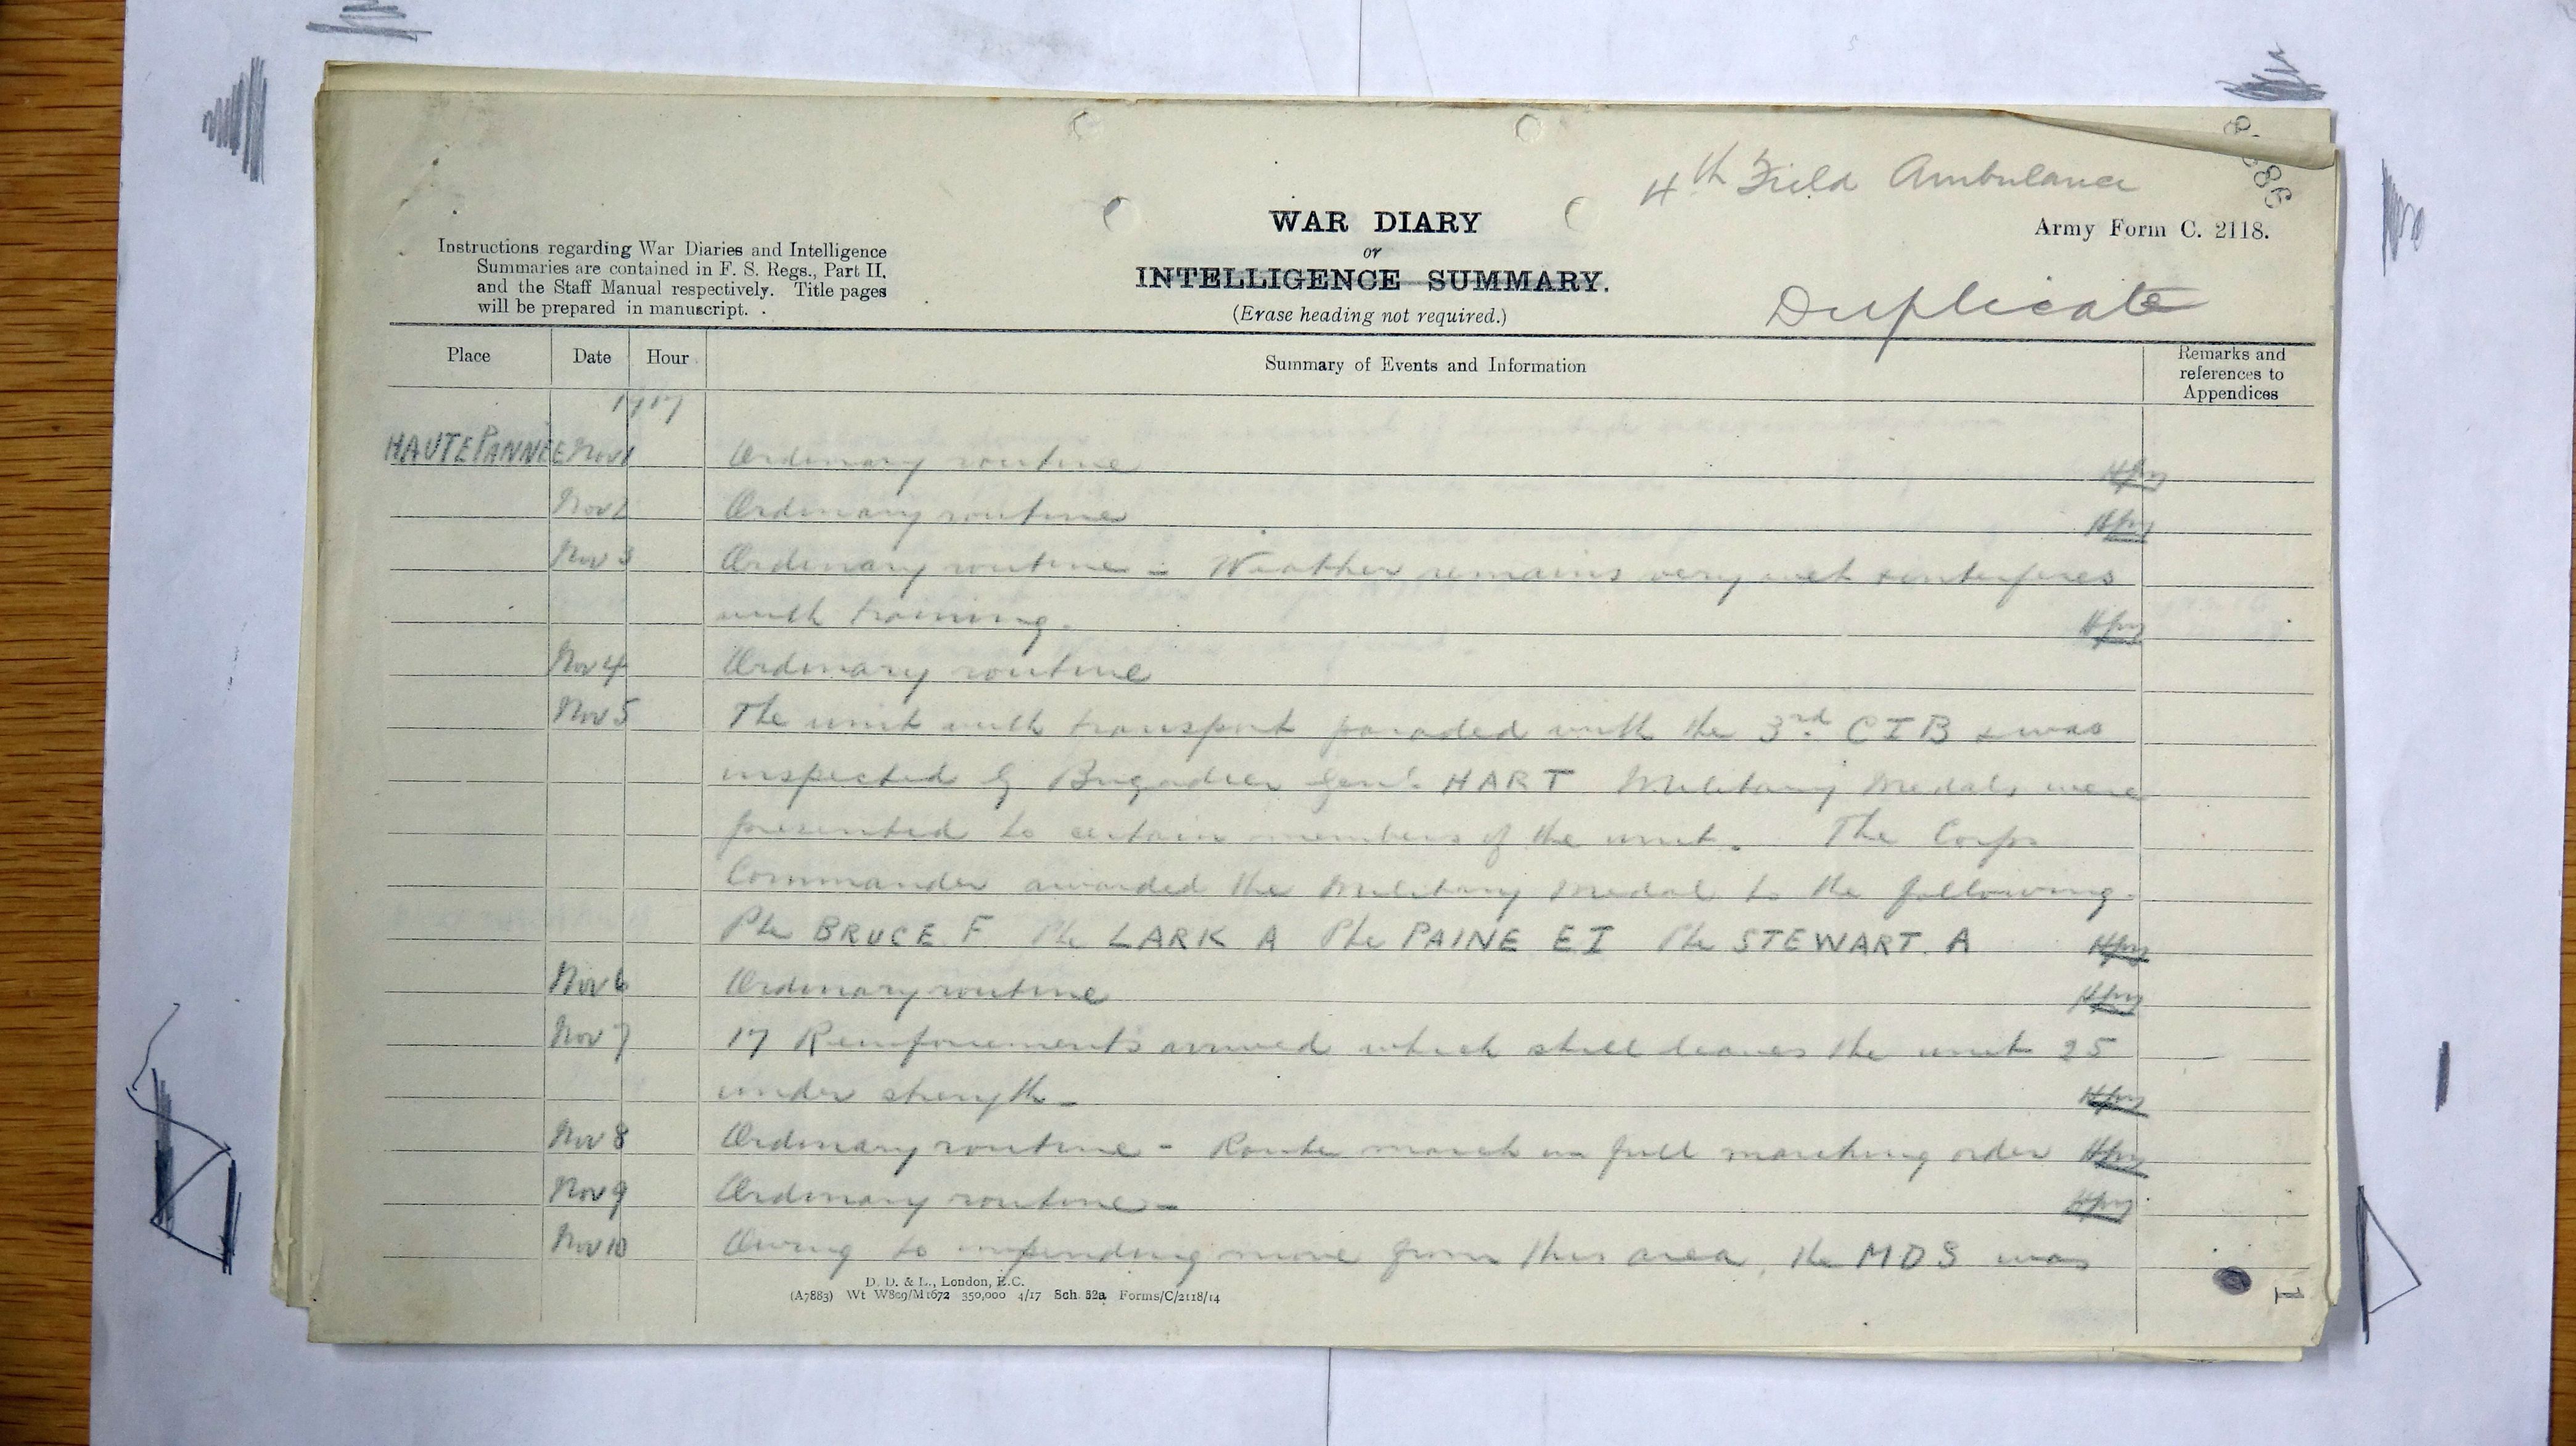 4th Field Ambulance
WAR DIARY
or
INTELLIGENCE SUMMARY.
(Erase heading not required.)
Army Form C. 2118.
Duplicate
Instructions regarding War Diaries and Intelligence
Summaries are contained in F. S. Regs., Part II.
and the Staff Manual respectively. Title pages
will be prepared in manuscript.
Place Date Hour Summary of Events and Information Remarks and references to Appendices
1917
HAUTEPANNÉE Nov 1 Ordinary routine
Nov 2 Ordinary routine
Nov 3 Ordinary routine - Weather remains very wet & interferes
with training.
Nov 4 Ordinary routine
Nov 5 The unit with transport paraded with the 3rd CIB & was
inspected by Brigadier Genl. HART Military Medals were
presented to certain members of the unit. The Corps
Commander awarded the Military Medal to the following.
Pte BRUCE F Pte LARK A Pte PAINE E I Pte STEWART. A
Nov 6 Ordinary routine
Nov 7 17 Reinforcements arrived which still leaves the unit 25
under strength -
Nov 8 Ordinary routine - Route march in full marching order
Nov 9 Ordinary routine -
Nov 10 Owing to impending move from this area, the MDS was
D. D. & L., London, E.C.
(A7883) Wt W809/M1672 350,000 4/17 Sch. 52a Forms/C/2118/14
1